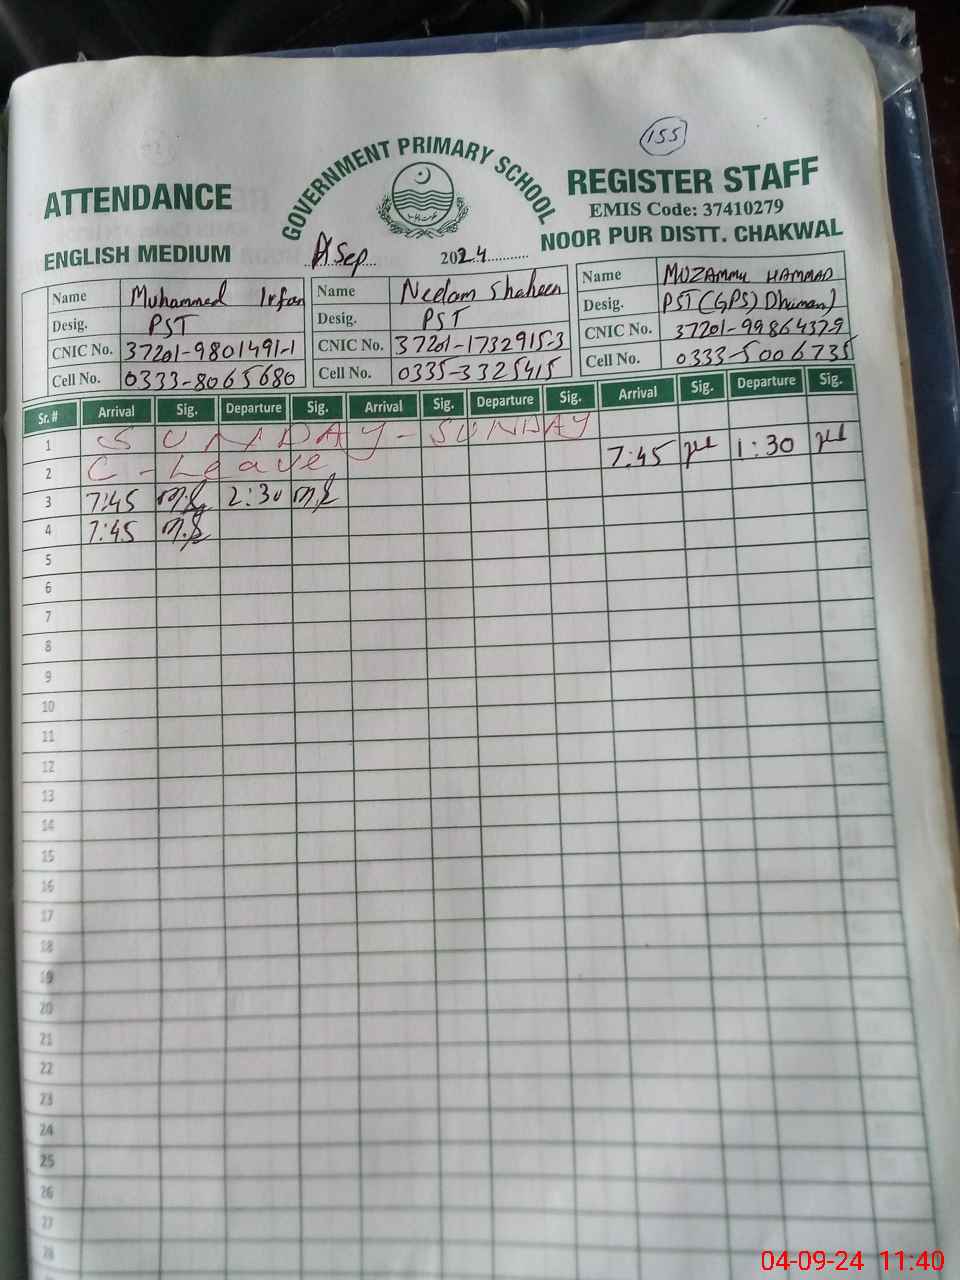 155
GOVERNMENT PRIMARY SCHOOL
ATTENDANCE
REGISTER STAFF
EMIS Code: 37410279
ENGLISH MEDIUM
Sep 2024
NOOR PUR DISTT. CHAKWAL
Name Muhammed Irfan Name Neelam Shaheen Name MUZAMMIL HAMMAD
Desig. PST Desig. PST Desig. PST (GPS) Dhuman)
CNIC No. 37201-9801491-1 CNIC No. 37201-1732915-3 CNIC No. 37201-9986437-9
Cell No. 0333-8065680 Cell No. 0335-3325415 Cell No. 0333-5006735
Sr. # Arrival Sig. Departure Sig. Arrival Sig. Departure Sig. Arrival Sig. Departure Sig.
1 SUNDAY - SUNDAY
2 C - Leave 7:45 1:30
3 7:45 2:30
4 7:45
5
6
7
8
9
10
11
12
13
14
15
16
17
18
19
20
21
22
23
24
25
26
27
28
04-09-24 11:40